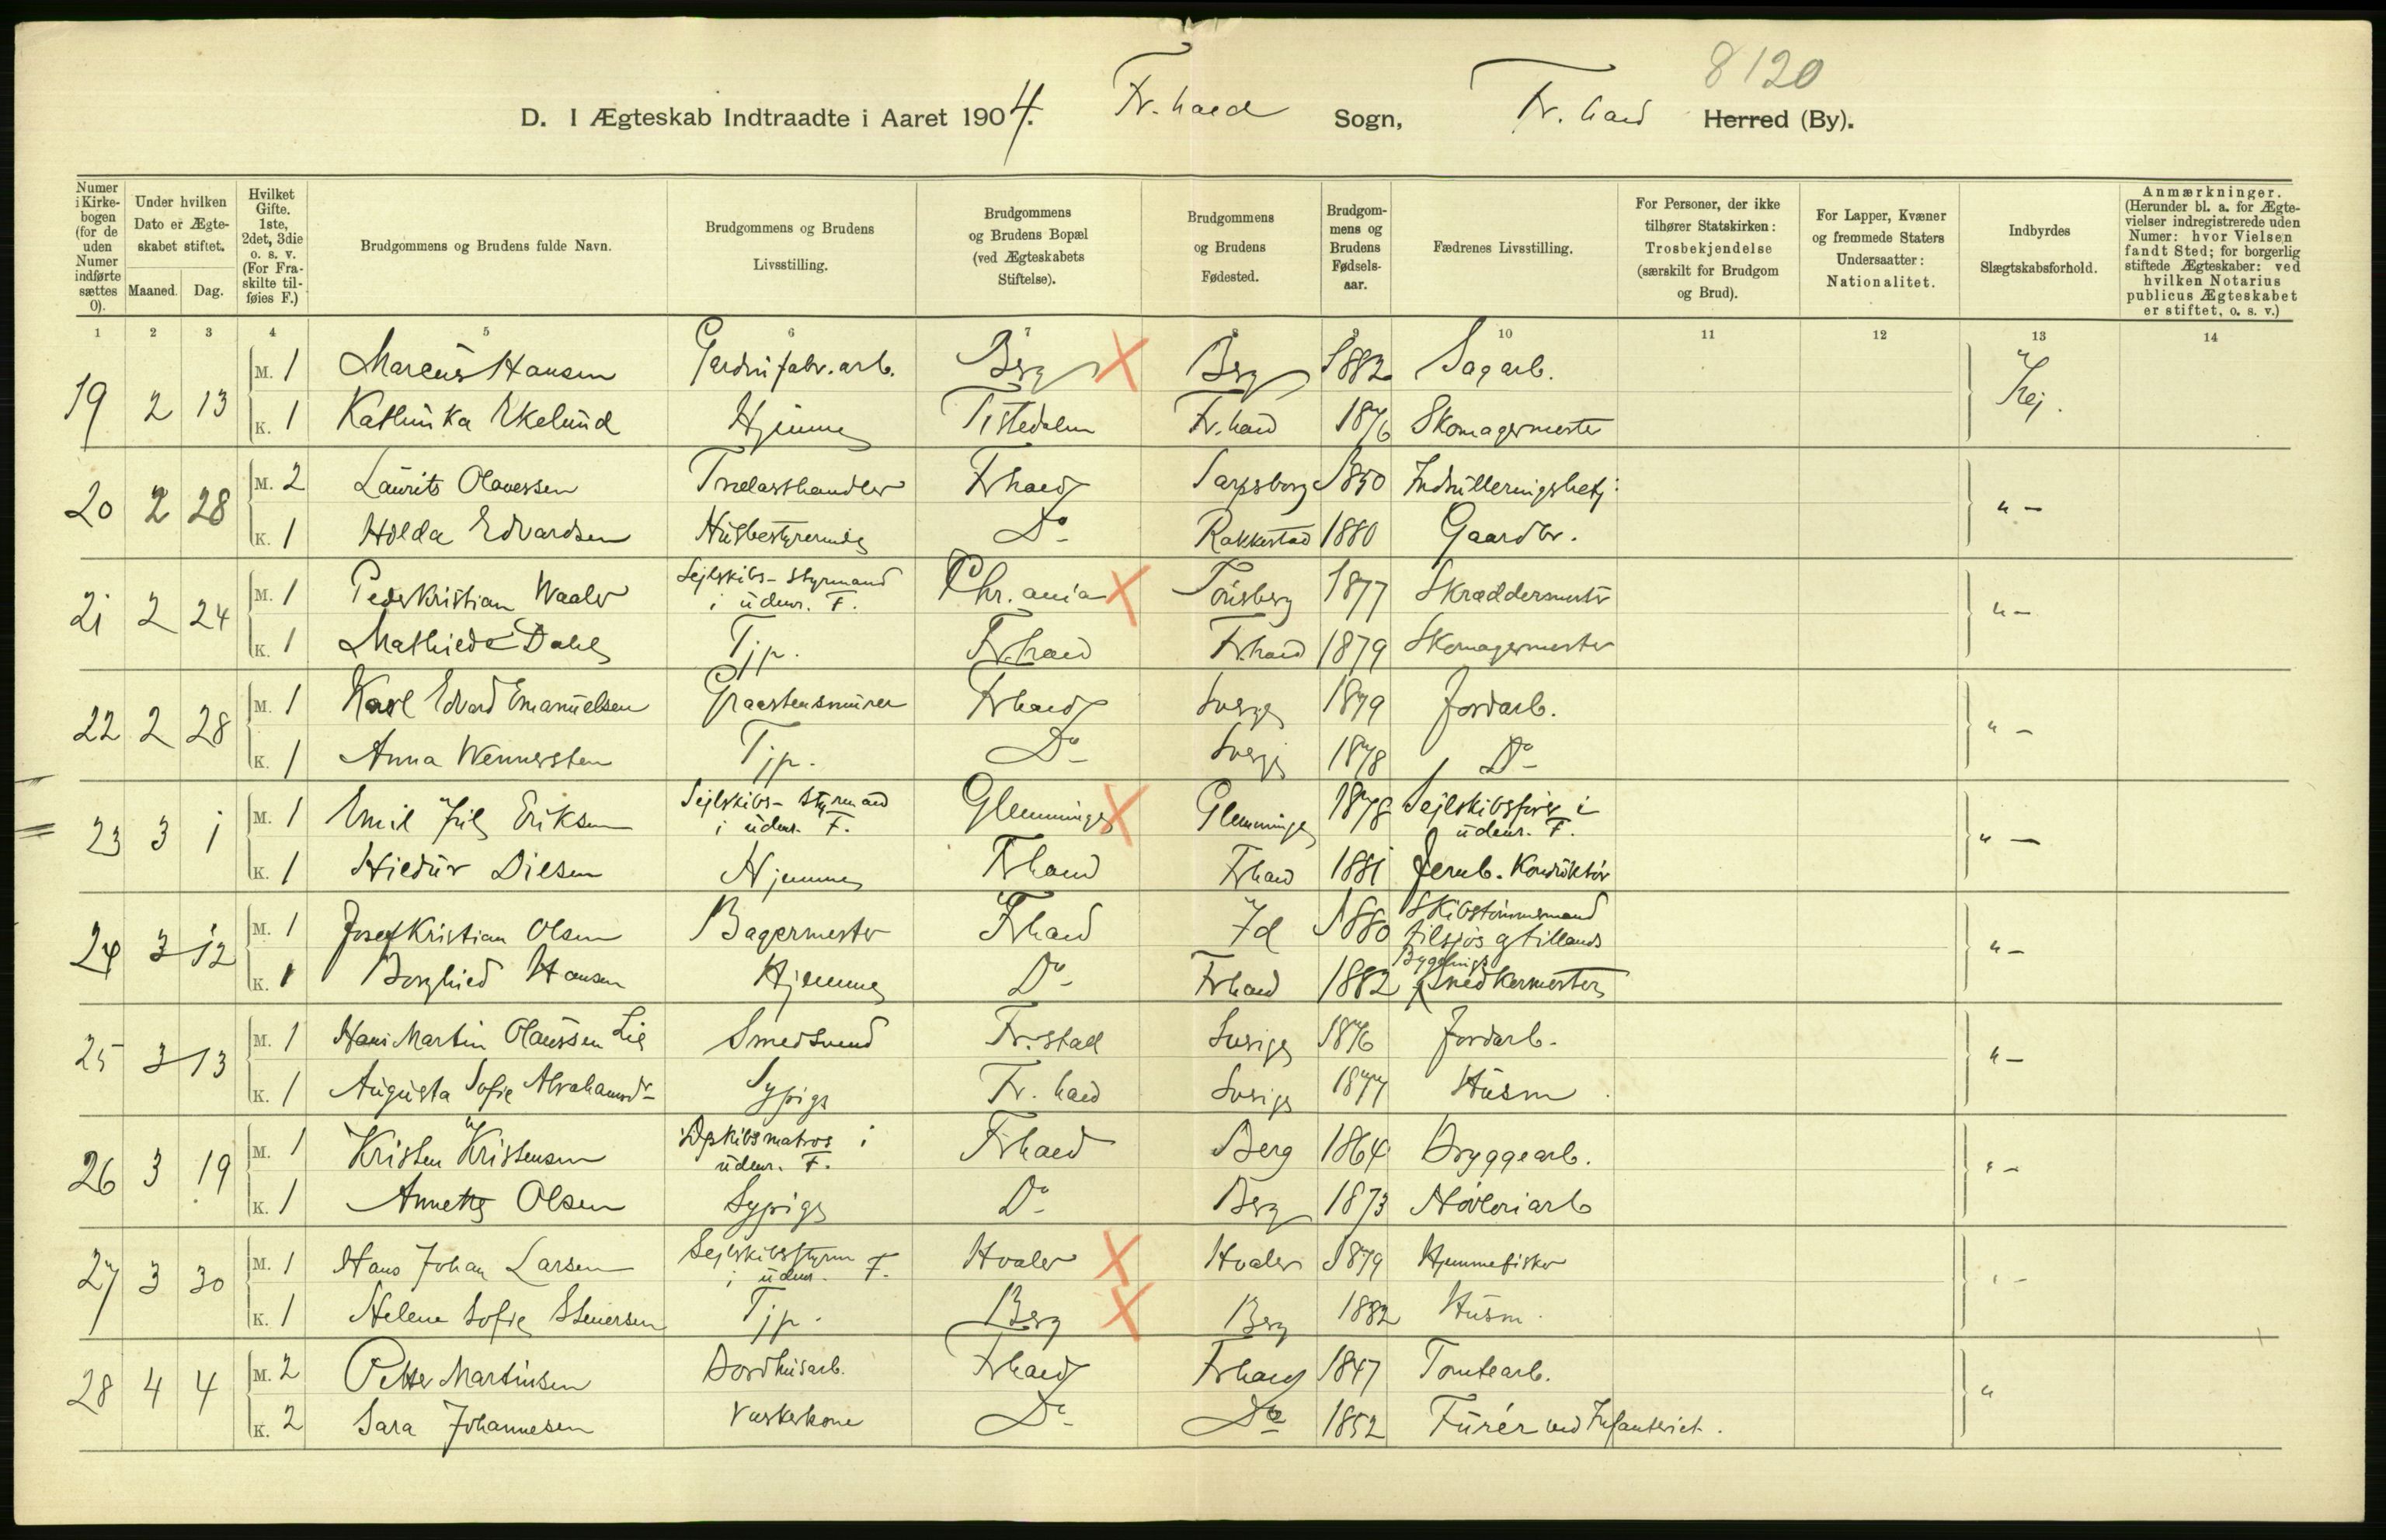 8120
D. I Ægteskab Indtraadte i Aaret 1904. Fr.hald Sogn, Fr. hald Herred (By).
Numer i Kirkebogen (for de uden Numer indførte sættes 0). Under hvilken Dato er Ægteskabet stiftet. Maaned. Dag. Hvilket Gifte. 1ste, 2det, 3die o. s. v. (For Fraskilte tilføies F.) Brudgommens og Brudens fulde Navn. Brudgommens og Brudens Livsstilling. Brudgommens og Brudens Bopæl (ved Ægteskabets Stiftelse). Brudgommens og Brudens Fødested. Brudgommens og Brudens Fødselsaar. Fædrenes Livsstilling. For Personer, der ikke tilhører Statskirken: Trosbekjendelse (særskilt for Brudgom og Brud). For Lapper, Kvæner og fremmede Staters Undersaatter: Nationalitet. Indbyrdes Slægtskabsforhold. Anmærkninger. (Herunder bl. a. for Ægtevielser indregistrerede uden Numer: hvor Vielsen fandt Sted; for borgerlig stiftede Ægteskaber: ved hvilken Notarius publicus Ægteskabet er stiftet, o. s. v.)
1 2 3 4 5 6 7 8 9 10 11 12 13 14
19 2 13 M. 1 Marcus Hansen Gardinfabr. arb. Berg Berg 1882 Sagarb. Nej.
K. 1 Kathinka Ekelund Hjemme Tistedalen Fr.hald 1876 Skomagermester
20 2 28 M. 2 Laurits Olavessen Trælasthandler Frhald Sarpsborg 1850 Indrulleringsbetj. " –
K. 1 Holda Edvardsen Husbestyrerinde Do Rakkestad 1880 Gaardbr.
21 2 24 M. 1 Peder Kristian Waaler Sejlskibs-Styrmand i udenr. F. Chr.ania Tønsberg 1877 Skræddermester " –
K. 1 Mathilde Dahl Tjp. Fr.hald Fr.hald 1879 Skomagermester
22 2 28 M. 1 Karl Edvard Emanuelsen Graastensmurer Frhald Sverge 1879 Jordarb. " –
K. 1 Anna Wennersten Tjp. Do Sverge 1878 Do
23 3 1 M. 1 Emil Juel Eriksen Sejlskibs-Styrmand i udenr. F. Glemminge Glemminge 1878 Sejlskibsfører i udenr. F. " –
K. 1 Hildur Dilsen Hjemme Frhald Frhald 1881 Jernb. Konduktør
24 3 12 M. 1 Josef Kristian Olsen Bagermester Frhald Id 1880 Skibstømmermand tilsjøs og tillands " –
K. 1 Borghild Hansen Hjemme Do Frhald 1882 Bygnings Snedkermester
25 3 13 M. 1 Hans Martin Olaussen Lie Smedsvend Fr.stad Sverige 1876 Jordarb. " –
K. 1 Augusta Sofie Abrahamsdr Sypige Fr. hald Sverige 1877 Husm
26 3 19 M. 1 Kristen Kristensen Dpskibsmatros i udenr. F. Frhald Berg 1864 Bryggearb. " –
K. 1 Annette Olsen Sypige Do Berg 1873 Høvleriarb
27 3 30 M. 1 Hans Johan Larsen Sejlskibsstyrm i udenr. F. Hvaler Hvaler 1879 Hjemmefisker " –
K. 1 Helene Sofie Stenersen Tjp. Berg Berg 1882 Husm.
28 4 4 M. 2 Petter Martinsen Bordhusarb. Frhald Frhald 1847 Tomtearb. "
K. 2 Sara Johannesen Vaskekone Do Do 1852 Furér ved Infanteriet.